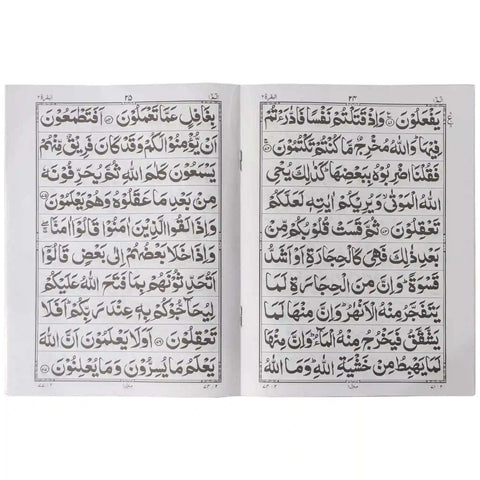 البقرة ٢
٢٤
الٓمّٓ ١
يَفْعَلُوْنَ ۞ وَاِذْ قَتَلْتُمْ نَفْسًا فَادّٰرَءْتُمْ
فِيْهَا وَاللّٰهُ مُخْرِجٌ مَّا كُنْتُمْ تَكْتُمُوْنَ ۞
فَقُلْنَا اضْرِبُوْهُ بِبَعْضِهَا كَذٰلِكَ يُحْيِ
اللّٰهُ الْمَوْتٰى وَيُرِيْكُمْ اٰيٰتِهٖ لَعَلَّكُمْ
تَعْقِلُوْنَ ۞ ثُمَّ قَسَتْ قُلُوْبُكُمْ مِّنْ
بَعْدِ ذٰلِكَ فَهِيَ كَالْحِجَارَةِ اَوْ اَشَدُّ
قَسْوَةً وَاِنَّ مِنَ الْحِجَارَةِ لَمَا
يَتَفَجَّرُ مِنْهُ الْاَنْهٰرُ وَاِنَّ مِنْهَا لَمَا
يَشَّقَّقُ فَيَخْرُجُ مِنْهُ الْمَآءُ وَاِنَّ مِنْهَا
لَمَا يَهْبِطُ مِنْ خَشْيَةِ اللّٰهِ وَمَا اللّٰهُ
البقرة ٢
٢٥
الٓمّٓ ١
بِغَافِلٍ عَمَّا تَعْمَلُوْنَ ۞ اَفَتَطْمَعُوْنَ
اَنْ يُّؤْمِنُوْا لَكُمْ وَقَدْ كَانَ فَرِيْقٌ مِّنْهُمْ
يَسْمَعُوْنَ كَلٰمَ اللّٰهِ ثُمَّ يُحَرِّفُوْنَهٗ
مِنْ بَعْدِ مَا عَقَلُوْهُ وَهُمْ يَعْلَمُوْنَ ۞
وَاِذَا لَقُوا الَّذِيْنَ اٰمَنُوْا قَالُوْٓا اٰمَنَّا
وَاِذَا خَلَا بَعْضُهُمْ اِلٰى بَعْضٍ قَالُوْٓا
اَتُحَدِّثُوْنَهُمْ بِمَا فَتَحَ اللّٰهُ عَلَيْكُمْ
لِيُحَآجُّوْكُمْ بِهٖ عِنْدَ رَبِّكُمْ اَفَلَا
تَعْقِلُوْنَ ۞ اَوَلَا يَعْلَمُوْنَ اَنَّ اللّٰهَ
يَعْلَمُ مَا يُسِرُّوْنَ وَمَا يُعْلِنُوْنَ ۞